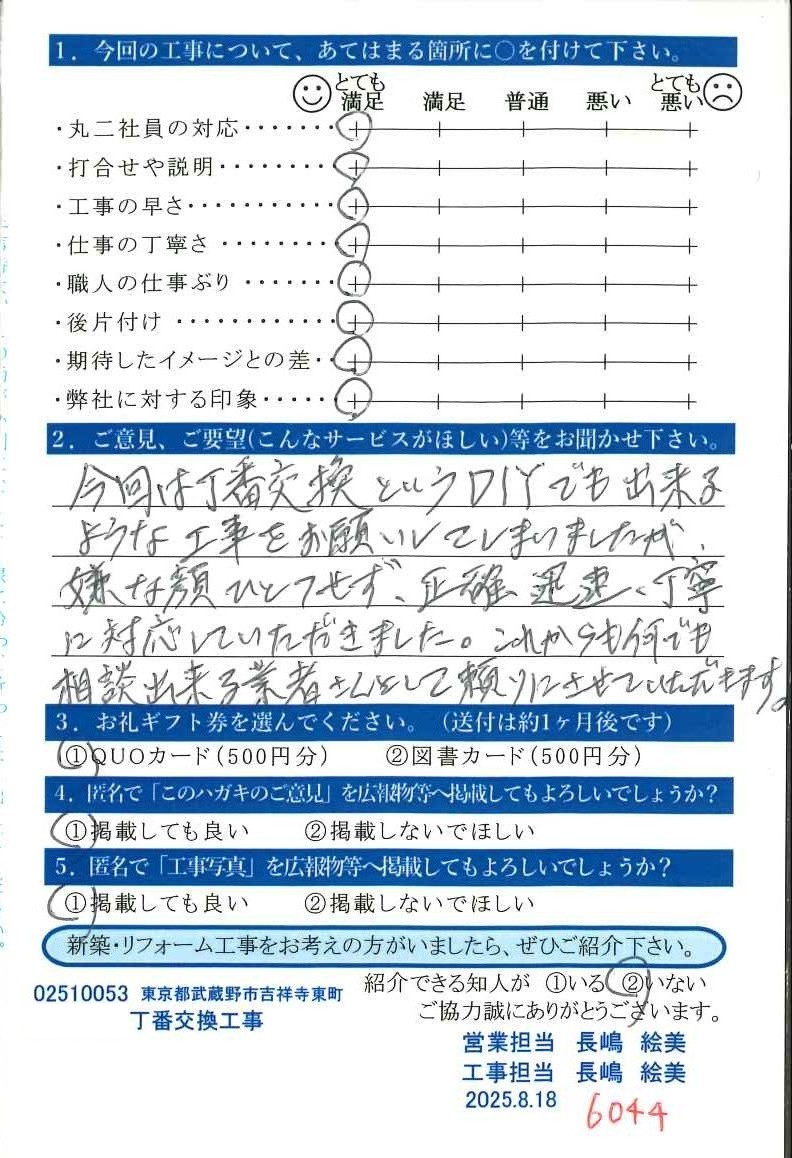 1．今回の工事について、あてはまる箇所に○を付けて下さい。
とても満足 満足 普通 悪い とても悪い
・丸二社員の対応・・・・・・・
・打合せや説明・・・・・・・・
・工事の早さ・・・・・・・・・・
・仕事の丁寧さ ・・・・・・・・
・職人の仕事ぶり ・・・・・・・
・後片付け ・・・・・・・・・・・
・期待したイメージとの差・・
・弊社に対する印象・・・・・・
2．ご意見、ご要望(こんなサービスがほしい)等をお聞かせ下さい。
今回は丁番交換というDIYでも出来る
ような工事をお願いしてしまいましたが、
嫌な顔ひとつせず、正確、迅速、丁寧
に対応していただきました。これからも何でも
相談出来る業者さんとして頼りにさせていただきます。
3．お礼ギフト券を選んでください。（送付は約1ヶ月後です）
①QUOカード(500円分) ②図書カード(500円分)
4．匿名で「このハガキのご意見」を広報物等へ掲載してもよろしいでしょうか？
①掲載しても良い ②掲載しないでほしい
5．匿名で「工事写真」を広報物等へ掲載してもよろしいでしょうか？
①掲載しても良い ②掲載しないでほしい
新築・リフォーム工事をお考えの方がいましたら、ぜひご紹介下さい。
紹介できる知人が ①いる ②いない
02510053 東京都武蔵野市吉祥寺東町
ご協力誠にありがとうございます。
丁番交換工事
営業担当 長嶋 絵美
工事担当 長嶋 絵美
2025.8.18
6044